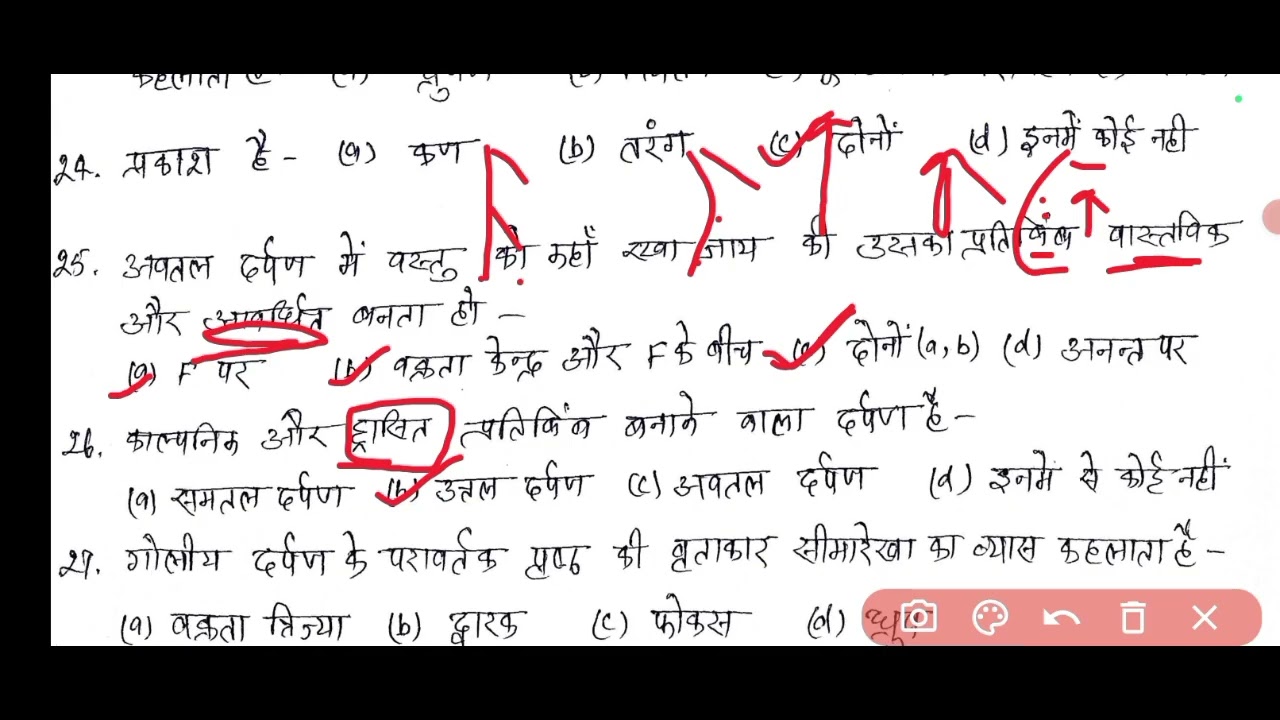 कहलाता है
24. प्रकाश है - (a) कण (b) तरंग (c) दोनों (d) इनमें कोई नही
25. अवतल दर्पण में वस्तु को कहाँ रखा जाय की उसका प्रतिबिंब वास्तविक
और आवर्धित बनता हो -
(a) F पर (b) वक्रता केन्द्र और F के बीच (c) दोनों (a, b) (d) अनन्त पर
26. काल्पनिक और ह्रासित प्रतिबिंब बनाने वाला दर्पण है -
(a) समतल दर्पण (b) उत्तल दर्पण (c) अवतल दर्पण (d) इनमें से कोई नहीं
27. गोलीय दर्पण के परावर्तक पृष्ठ की वृताकार सीमारेखा का व्यास कहलाता है -
(a) वक्रता त्रिज्या (b) द्वारक (c) फोकस (d)